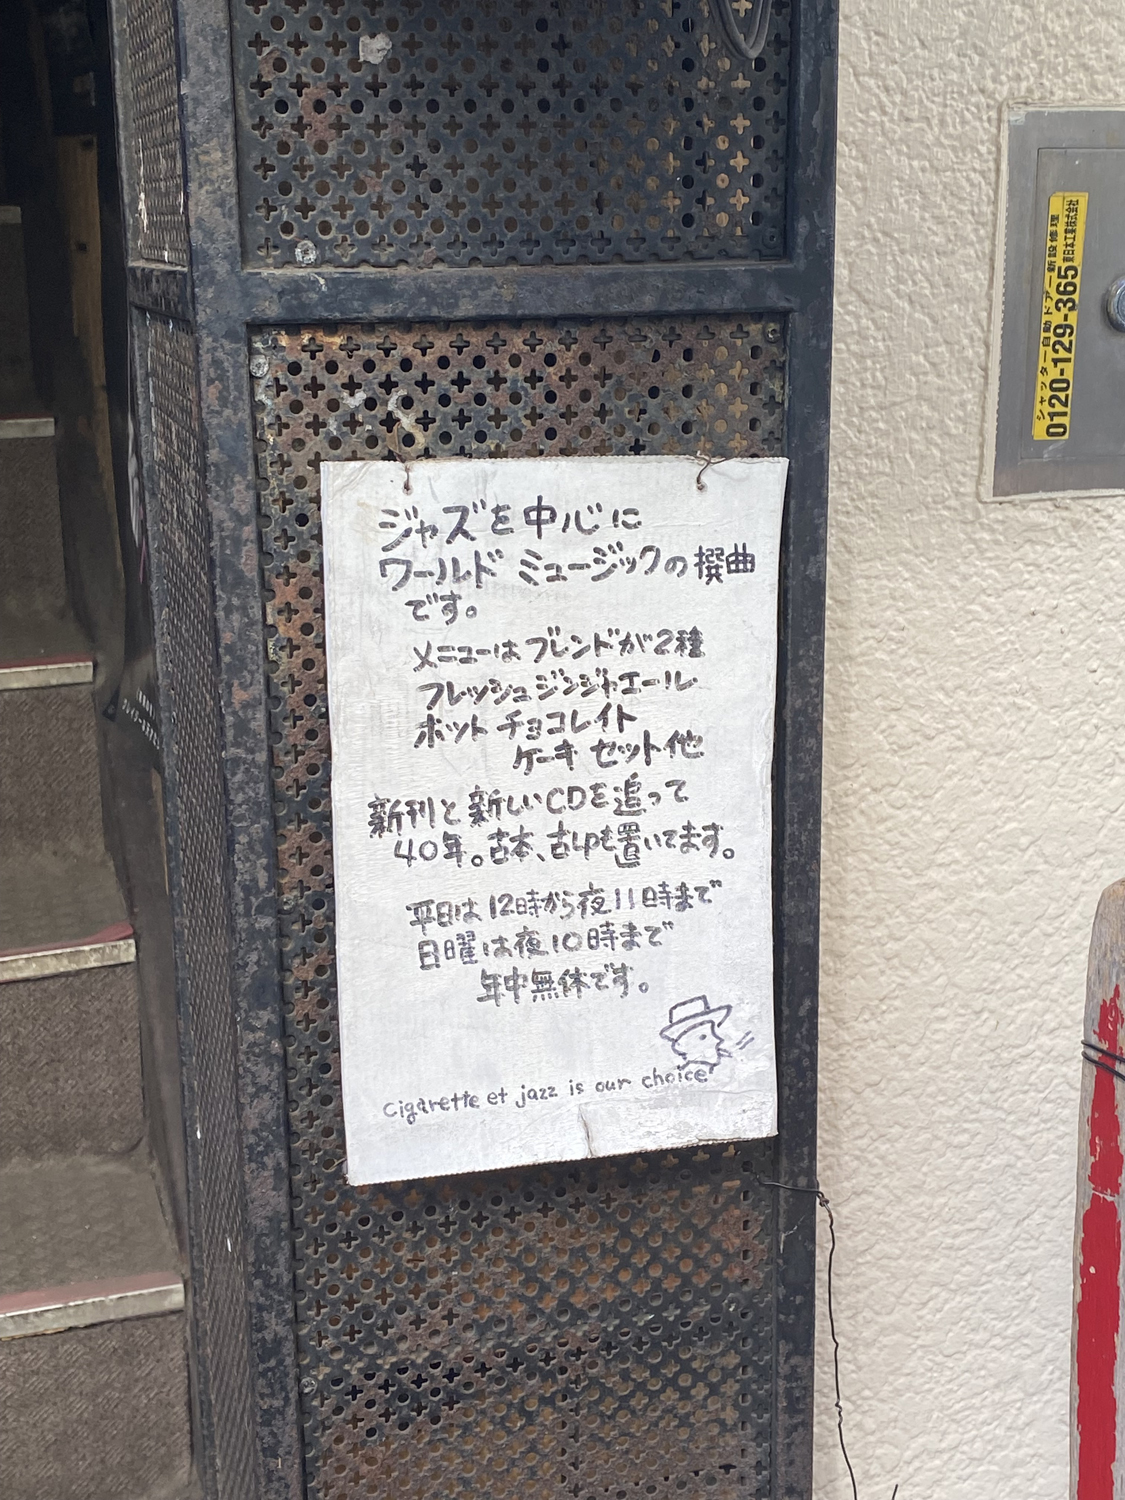 ジャズを中心に
ワールド ミュージックの撰曲
です。
メニューは ブレンドが2種
フレッシュジンジャエール
ホット チョコレイト
ケーキ セット他
新刊と新しいCDを追って
40年。古本、古LPも置いてます。
平日は12時から夜11時まで
日曜は夜10時まで
年中無休です。
cigarette et jazz is our choice
シャッター自動ドアー新設修理
0120-129-365 東日本工業株式会社